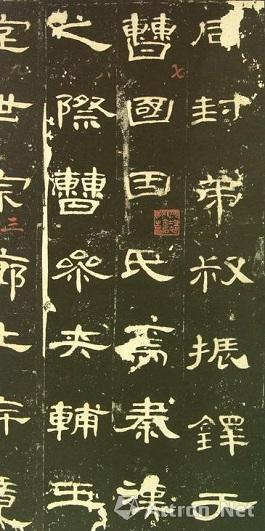 同封弟叔振鐸于
曹國因氏焉秦漢
之際曹參夾輔王
室世宗廓土斥竟
七
八
三
Artron.Net